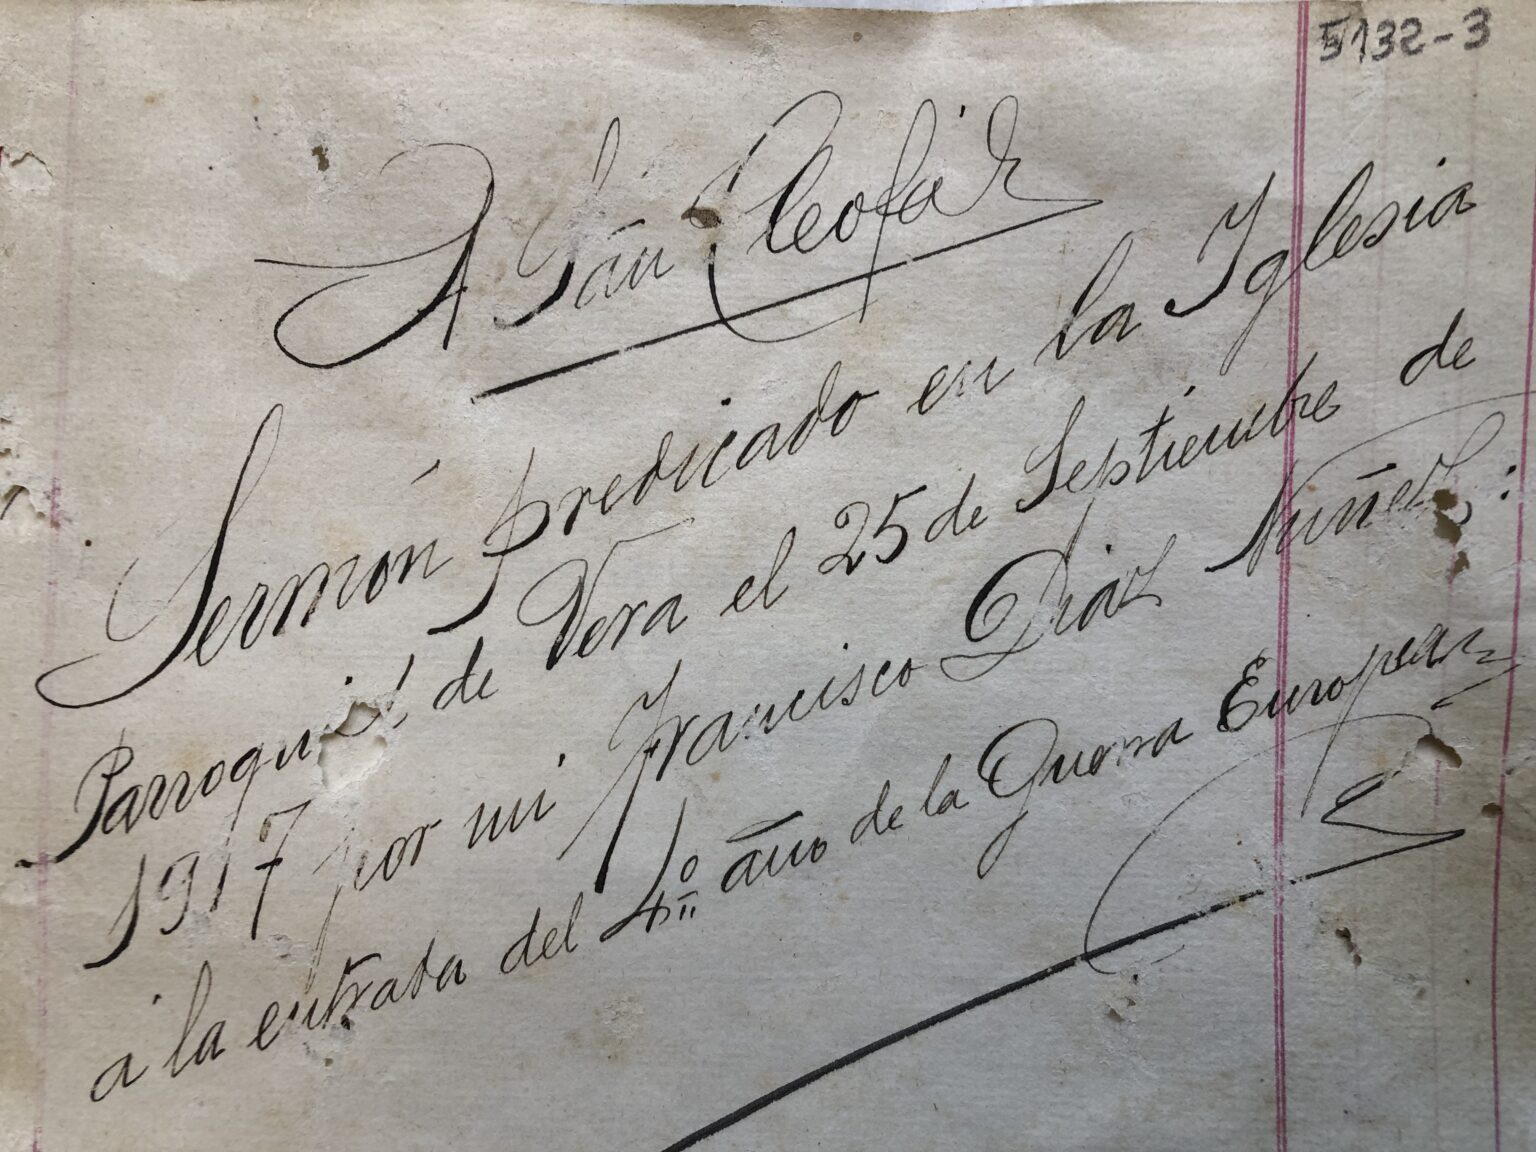 5132-3
A San Cleofás
Sermón predicado en la Iglesia
Parroquial de Vera el 25 de Septiembre de
1917 por mi Francisco Diaz Nuñez:
á la entrada del 4º año de la Guerra Europea